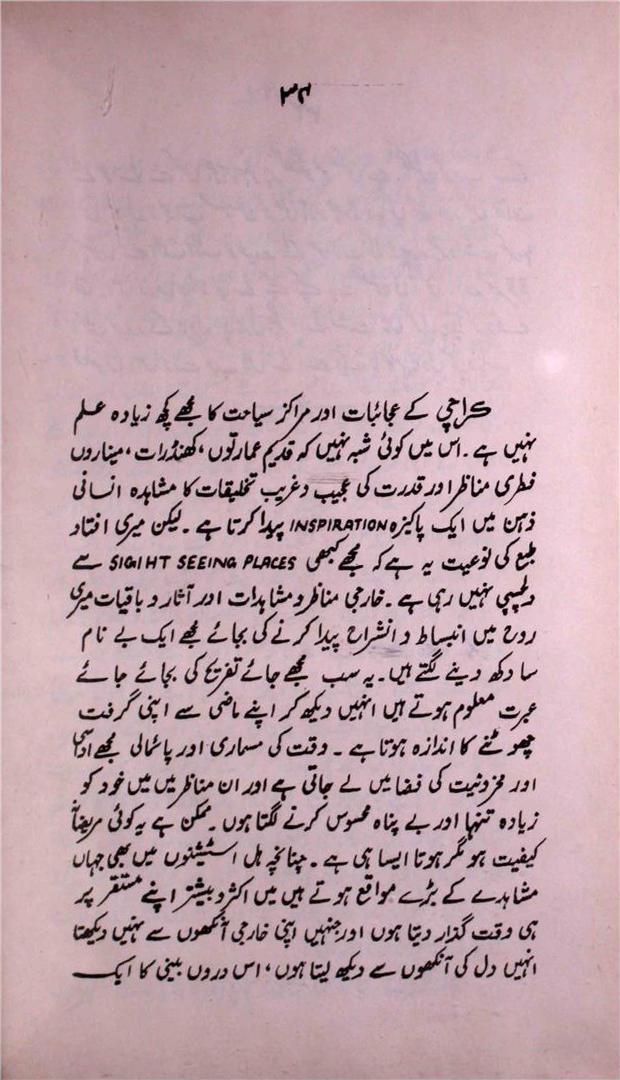 ۳۴
کراچی کے عجائبات اور مراکز سیاحت کا مجھے کچھ زیادہ علم
نہیں ہے۔ اس میں کوئی شبہ نہیں کہ قدیم عمارتوں، کھنڈرات، میناروں
فطری مناظر اور قدرت کی عجیب و غریب تخلیقات کا مشاہدہ انسانی
ذہن میں ایک پاکیزہ INSPIRATION پیدا کرتا ہے۔ لیکن میری افتاد
طبع کی نوعیت یہ ہے کہ مجھے کبھی SIGIHT SEEING PLACES سے
دلچسپی نہیں رہی ہے۔ خارجی مناظر و مشاہدات اور آثار و باقیات میری
روح میں انبساط و انشراح پیدا کرنے کی بجائے مجھے ایک بے نام
سا دکھ دینے لگتے ہیں۔ یہ سب مجھے جائے تفریح کی بجائے جائے
عبرت معلوم ہوتے ہیں انہیں دیکھ کر اپنے ماضی سے اپنی گرفت
چھوٹنے کا اندازہ ہوتا ہے۔ وقت کی مسماری اور پائمالی مجھے اداسی
اور محزونیت کی فضا میں لے جاتی ہے اور ان مناظر میں میں خود کو
زیادہ تنہا اور بے پناہ محسوس کرنے لگتا ہوں۔ ممکن ہے یہ کوئی مریضانہ
کیفیت ہو مگر ہوتا ایسا ہی ہے۔ چنانچہ ہل اسٹیشنوں میں بھی جہاں
مشاہدے کے بڑے مواقع ہوتے ہیں میں اکثر و بیشتر اپنے مستقر پر
ہی وقت گذار دیتا ہوں اور جنہیں اپنی خارجی آنکھوں سے نہیں دیکھتا
انہیں دل کی آنکھوں سے دیکھ لیتا ہوں، اس دروں بینی کا ایک